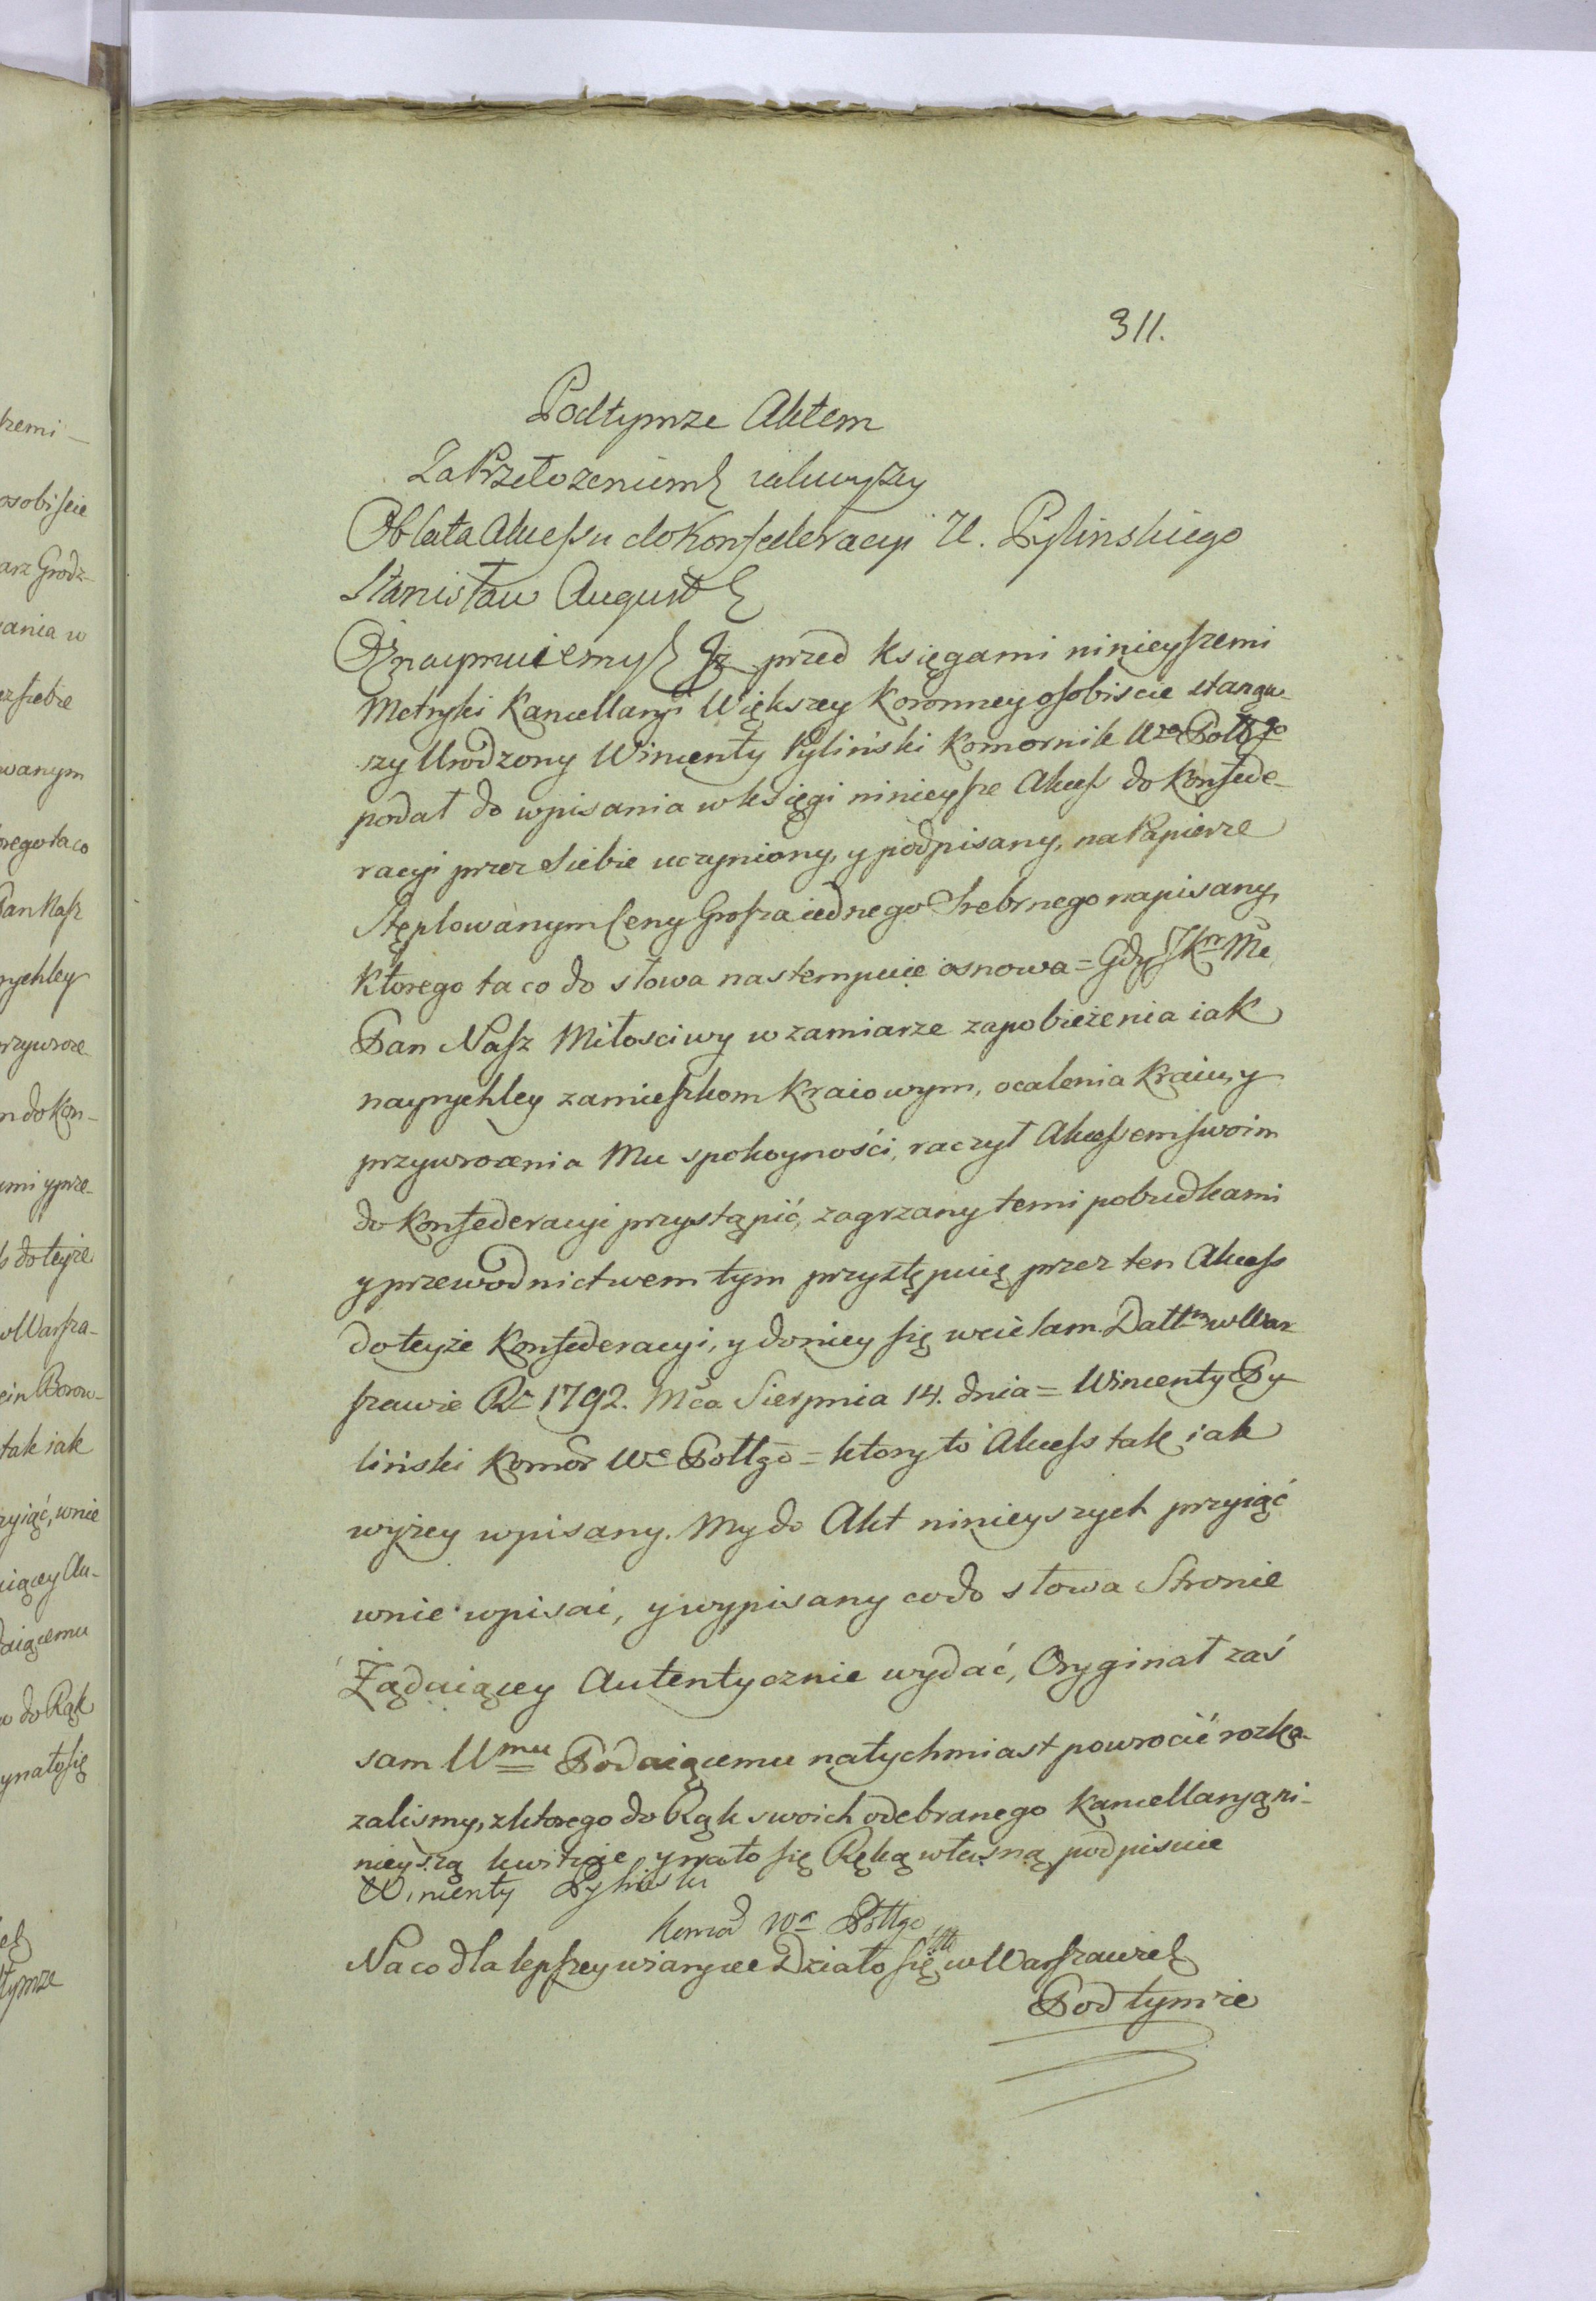 311.
Podtymze Aktem
Za Przełozeniem iakwyzey
Oblata Akcessu do Konfederacyi U. Pylinskiego
Stanisław August
Oznaymuiemy Iz przed Księgami ninieyszemi
Metryki Kancellaryi Większey Koronney osobiscie stanąw-
szy Urodzony Wincenty Pyliński Komornik Wa Pottgo
podał do wpisania w księgi ninieysze Akcess do Konfede-
racyi przez Siebie uczyniony, y podpisany, na Papierze
Stęplowanym Ceny Grosza iednego Srebrnego napisany,
Którego ta co do słowa nastempuie osnowa = Gdy JKr Mć
Pan Nasz Miłosciwy w zamiarze zapobieżenia iak
nayrychley zamieszkom Kraiowym, ocalenia Kraiu, y
przywrocenia Mu spokoyności, raczył Akcessem swoim
do Konfederacyi przystąpić, zagrzany temi pobudkami
y przewodnictwem tym przystępuię przez ten Akcess
do teyże Konfederacyi, y do niey się wcielam Dattm w War
szawie Ru 1792. Mca Sierpnia 14. dnia = Wincenty Py
liński Komor Wa Pottgo = ktory to Akcess tak iak
wyżey wpisany. My do Akt ninieyszych przyiąć
wnie wpisać, y wypisany co do słowa Stronie
Żądaiącey Autentycznie wydać, Oryginał zaś
sam Umu Podaiącemu natychmiast powrocić rozka-
zalismy, z ktorego do Rąk swoich odebranego Kancellaryą ni-
nieyszą kwituie y na to się Ręką własną podpisuie
Wincenty Pyliński
Komor Wa Pottgo
Na co dla lepszey wiary etc Działo się w Warszawie
Pod tymże